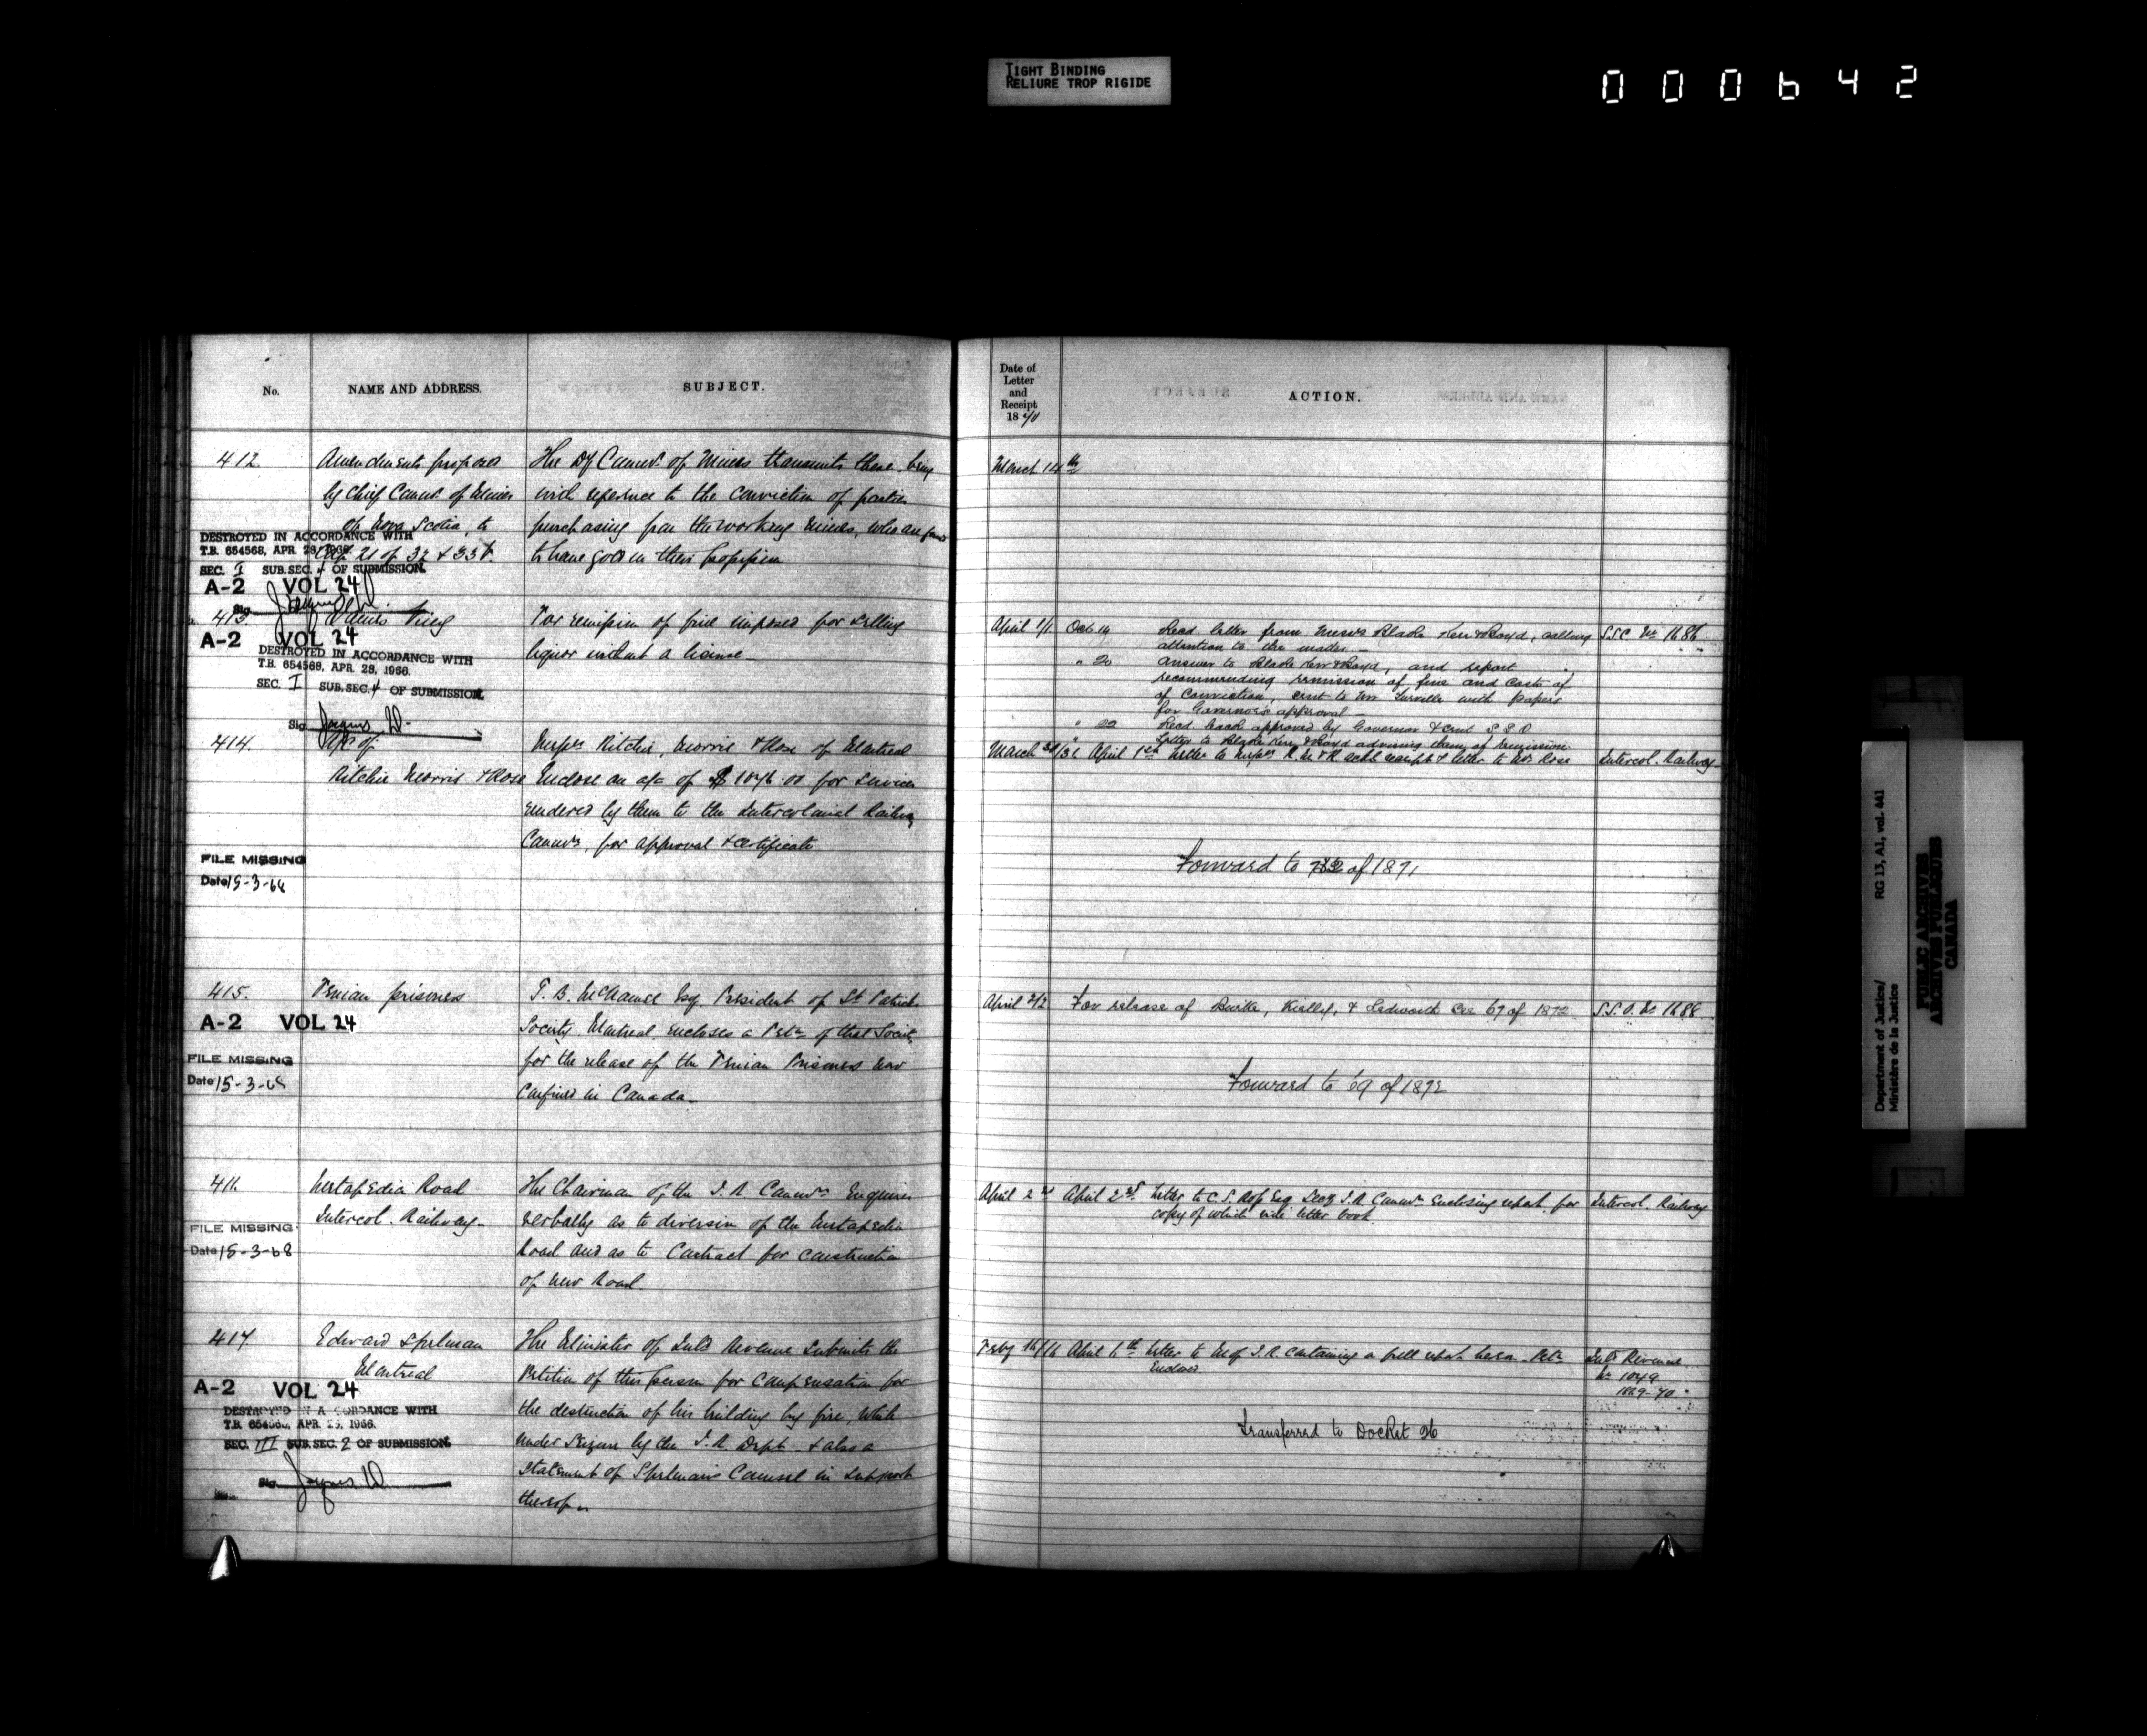 TIGHT BINDING
RELIURE TROP RIGIDE
000642
No.
NAME AND ADDRESS.
SUBJECT.
412.
Amendments proposed
by Chief Commr. of Mines
of Nova Scotia, to
Cap 21 of 32 & 33 V.
The Dy Commr. of Mines transmits these, being
with reference to the conviction of parties
purchasing from the working mines, who are found
to have gold in their possession
DESTROYED IN ACCORDANCE WITH
T.B. 654568, APR. 28, 1966.
SEC. I SUB.SEC. 4 OF SUBMISSION.
A-2 VOL 24
Sig
413.
For remission of fine imposed for selling
liquor without a license
A-2 VOL 24
DESTROYED IN ACCORDANCE WITH
T.B. 654568, APR. 28, 1966.
SEC. I SUB.SEC. 4 OF SUBMISSION.
Sig
414.
a/c of
Ritchie Morris & Rose
Messrs Ritchie, Morris & Rose of Montreal
Enclose an a/c of $ 1046.00 for services
rendered by them to the Intercolonial Railway
Commrs, for approval & certificate
FILE MISSING
Date 15-3-68
415.
Fenian prisoners
Esq. President of St Patrick
Society, Montreal encloses a Petn of that Society
for the release of the Fenian Prisoners now
Confined in Canada
A-2 VOL 24
FILE MISSING
Date 15-3-68
416
Metapedia Road
Intercol. Railway
The Chairman of the I. R. Commrs Enquires
verbally as to diversion of the Metapedia
Road and as to Contract for construction
of new Road.
FILE MISSING
Date 15-3-68
417.
Edward Spelman
Montreal
The Minister of Inld Revenue Submits the
Petition of this person for compensation for
the destruction of his building by fire, while
under seizure by the I. R. Dept. & also a
Statement of Spelman's Counsel in support
thereof
A-2 VOL 24
DESTROYED IN ACCORDANCE WITH
T.B. 654568, APR. 28, 1966.
SEC. III SUB.SEC. 2 OF SUBMISSION.
Sig
Date of
Letter
and
Receipt
18 70
ACTION.
March 14th
April 1/1
Oct 19 Recd letter from Messrs Blake Kerr & Boyd, calling
attention to the matter
" 20 Answer to Blake Kerr & Boyd, and report
recommending remission of fine and costs of
of Conviction, sent to Mr Turville with papers
for Governor's approval
" 22 Recd back approved by Governor & sent S S O
" Letter to Blake Kerr & Boyd advising them of remission
March 30/31 April 1st Letter to Messrs R. M. & R ackg receipt & letter to Mr Rose
Intercol. Railway
Forward to of 1871
April 2/2
For release of Burke, & See 69 of 1872
Forward to 69 of 1872
April 2nd April 2nd Letter to C. S. Ross Esq Secy I.R Commrs Enclosing report, for
copy of which vide letter book
Intercol. Railway
Feby 16/16 April 6th Letter to M of I. R. containing a full report hereon Petn
Enclosed
Inld Revenue
No 1049
1869-70
Transferred to Docket 26
Department of Justice/
Ministère de la Justice
RG 13, A1, vol. 441
PUBLIC ARCHIVES
ARCHIVES PUBLIQUES
CANADA